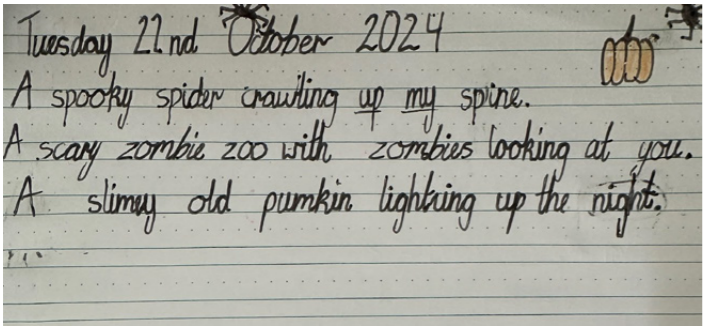 Tuesday 22nd October 2024
A spooky spider crawling up my spine.
A scary zombie zoo with zombies looking at you.
A slimey old pumkin lightning up the night.